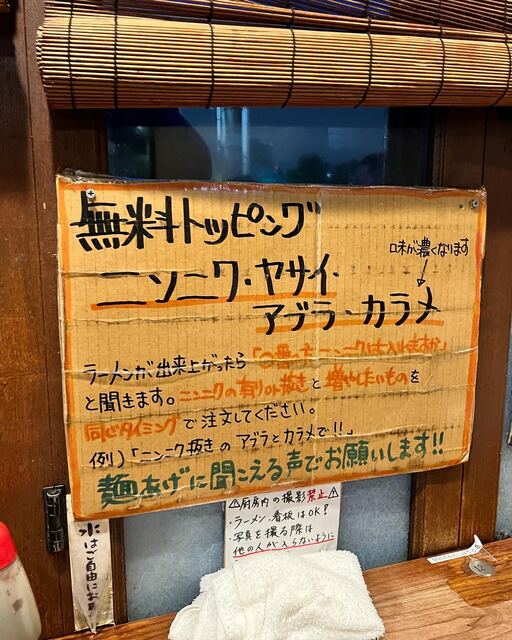 無料トッピング
ニンニク・ヤサイ・
味が濃くなります
アブラ・カラメ
ラーメンが出来上がったら「○番の方ニンニクは入れますか」
と聞きます。ニンニクの有りor抜きと増やしたいものを
同じタイミングで注文してください。
例)「ニンニク抜きのアブラとカラメで!!」
麺あげに聞こえる声でお願いします!!
⚠厨房内の撮影禁止⚠
・ラーメン、看板はOK!
・写真を撮る際は
他の人が入らないように
水はご自由にお
12